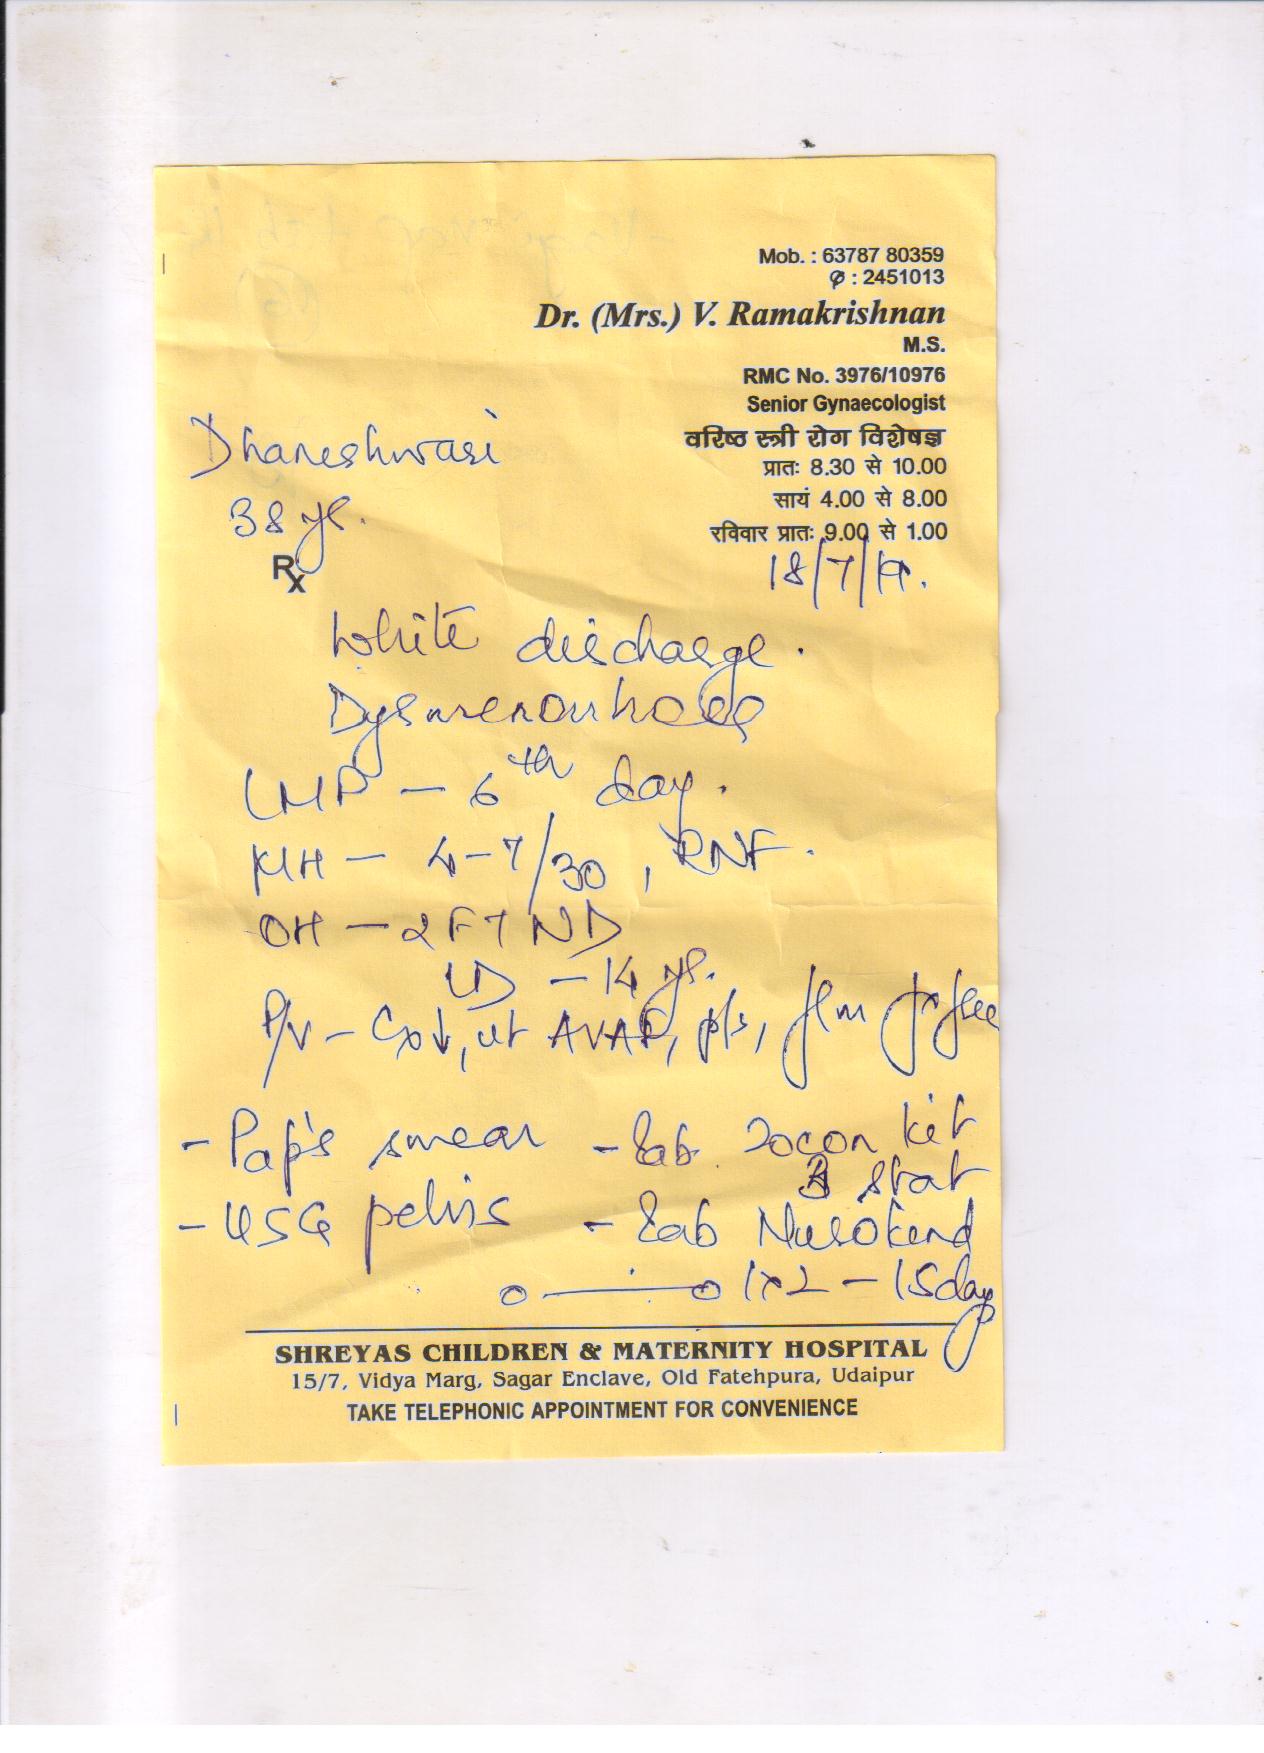 Mob. : 63787 80359
✆ : 2451013
Dr. (Mrs.) V. Ramakrishnan
M.S.
RMC No. 3976/10976
Senior Gynaecologist
वरिष्ठ स्त्री रोग विशेषज्ञ
प्रातः 8.30 से 10.00
सायं 4.00 से 8.00
रविवार प्रातः 9.00 से 1.00
Dhaneshwari
38 ys.
18/7/19.
Rx
White discharge.
Dysmenorrhoea
LMP - 6th day.
MH - 4-7/30, RNF.
OH - 2 FTND
LD - 14 ys.
P/V - Cx↓, ut AVAF, p/s,
- Pap's smear
- USG pelvis
- Tab Zocon kit
3 stat
- Tab
1x2 - 15 day
SHREYAS CHILDREN & MATERNITY HOSPITAL
15/7, Vidya Marg, Sagar Enclave, Old Fatehpura, Udaipur
TAKE TELEPHONIC APPOINTMENT FOR CONVENIENCE